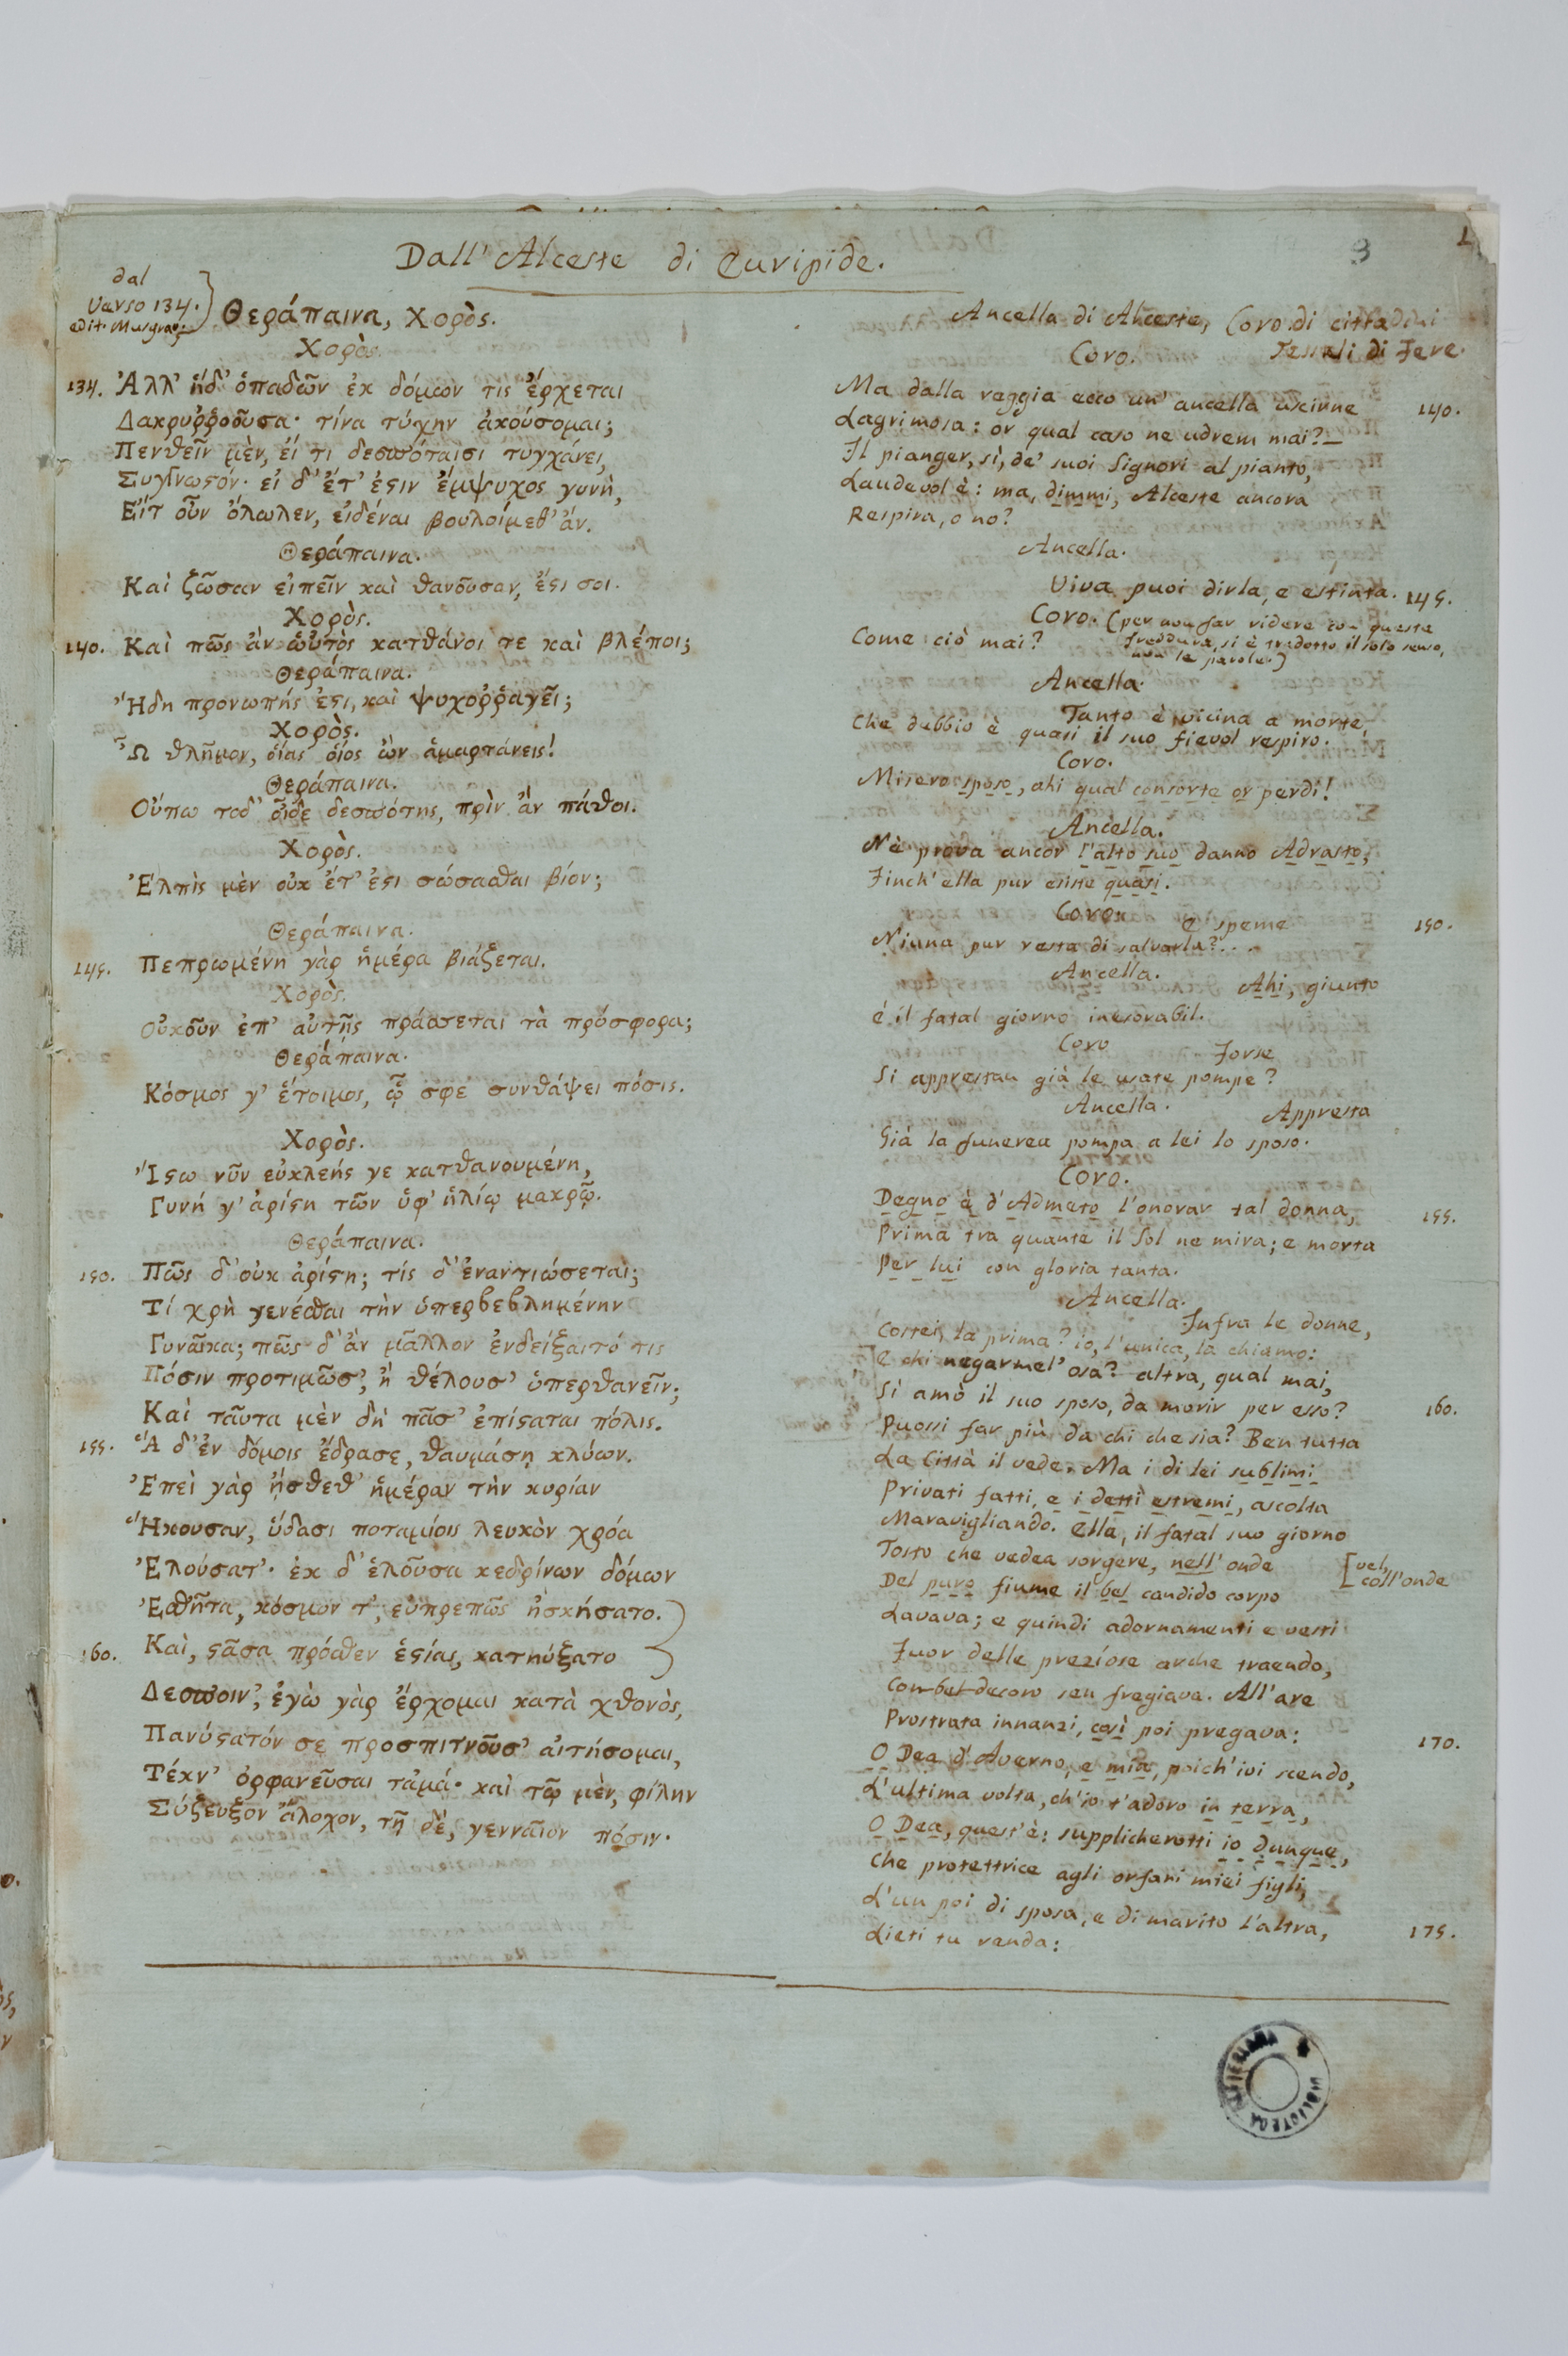 Dall' Alceste di Euripide.
3
dal
Verso 134.
edit. Musgrav.
Θεράπαινα, Χορὸς.
Χορὸς.
134. Ἀλλ' ἥδ' ὀπαδῶν ἐκ δόμων τις ἔρχεται
Δακρυῤῥοοῦσα· τίνα τύχην ἀκούσομαι;
Πενθεῖν μὲν, εἴ τι δεσπόταισι τυγχάνει,
Συγγνωστόν· εἰ δ' ἔτ' ἐστιν ἔμψυχος γυνὴ,
Εἴτ' οὖν ὄλωλεν, εἰδέναι βουλοίμεθ' ἄν.
Θεράπαινα.
Καὶ ζῶσαν εἰπεῖν καὶ θανοῦσαν, ἔστι σοι.
Χορὸς.
140. Καὶ πῶς ἂν αὑτὸς κατθάνοι τε καὶ βλέποι;
Θεράπαινα.
Ἤδη προνωπής ἐστι, καὶ ψυχοῤῥαγεῖ;
Χορὸς.
Ὦ θλῆμον, οἵας οἷος ὢν ἁμαρτάνεις!
Θεράπαινα.
Οὔπω τοδ' οἶδε δεσπότης, πρὶν ἂν πάθοι.
Χορὸς.
Ἐλπὶς μὲν οὐκ ἔτ' ἐστι σώσασθαι βίον;
Θεράπαινα.
145. Πεπρωμένη γὰρ ἡμέρα βιάζεται.
Χορὸς.
Οὐκοῦν ἐπ' αὐτῆς πράσσεται τὰ πρόσφορα;
Θεράπαινα.
Κόσμος γ' ἕτοιμος, ᾧ σφε συνθάψει πόσις.
Χορὸς.
Ἴστω νῦν εὐκλεής γε κατθανουμένη,
Γυνή γ' ἀρίστη τῶν ὑφ' ἡλίῳ μακρῷ.
Θεράπαινα.
150. Πῶς δ' οὐκ ἀρίστη; τίς δ' ἐναντιώσεται;
Τί χρὴ γενέσθαι τὴν ὑπερβεβλημένην
Γυναῖκα; πῶς δ' ἂν μᾶλλον ἐνδείξαιτό τις
Πόσιν προτιμῶσ', ἢ θέλουσ' ὑπερθανεῖν;
Καὶ ταῦτα μὲν δὴ πᾶσ' ἐπίσταται πόλις.
155. Ἃ δ' ἐν δόμοις ἔδρασε, θαυμάσῃ κλύων.
Ἐπεὶ γὰρ ᾔσθεθ' ἡμέραν τὴν κυρίαν
Ἥκουσαν, ὕδασι ποταμίοις λευκὸν χρόα
Ἐλούσατ'· ἐκ δ' ἑλοῦσα κεδρίνων δόμων
Ἐσθῆτα, κόσμον τ', εὐπρεπῶς ἠσκήσατο.
160. Καὶ, στᾶσα πρόσθεν ἑστίας, κατηύξατο
Δέσποιν', ἐγὼ γὰρ ἔρχομαι κατὰ χθονὸς,
Πανύστατόν σε προσπιτνοῦσ' αἰτήσομαι,
Τέκν' ὀρφανεῦσαι τἀμά· καὶ τῷ μὲν, φίλην
Σύζευξον ἄλοχον, τῇ δὲ, γενναῖον πόσιν.
Ancella di Alceste, Coro di cittadini
Tessali di Fere.
Coro.
Ma dalla reggia ecco un' ancella uscirne 140.
Lagrimosa: or qual caso ne udrem mai?—
Il pianger, sì, de' suoi Signori al pianto,
Laudevol è: ma, dimmi, Alceste ancora
Respira, o no?
Ancella.
Viva puoi dirla, e estinta. 145.
Coro. (per non far ridere con queste
freddura, si è tradotto il solo senso,
non le parole.)
Come ciò mai?
Ancella.
Tanto è vicina a morte,
Che debbio è quasi il suo fievol respiro.
Coro.
Misero sposo, ahi qual consorte or perdi!
Ancella.
Nè prova ancor l'alto suo danno Adrasto,
Finch' ella pur esiste quasi.
Coro.
E speme 150.
Niuna pur resta di salvarla?...
Ancella.
Ahi, giunto
è il fatal giorno inesorabil.
Coro
Forse
Si apprestan già le usate pompe?
Ancella.
Appresta
Già la funerea pompa a lei lo sposo.
Coro.
Degno è d'Admeto l'onorar tal donna, 155.
Prima tra quante il Sol ne mira; e morta
Per lui con gloria tanta.
Ancella.
Infra le donne,
Costei, la prima? io, l'unica, la chiamo:
E chi negarmel' osa? altra, qual mai,
Sì amò il suo sposo, da morir per esso? 160.
Puossi far più da chi che sia? Ben tutta
La Città il vede. Ma i di lei sublimi
Privati fatti, e i detti estremi, ascolta
Maravigliando. Ella, il fatal suo giorno
Tosto che vedea sorgere, nell' onde [vel,
coll'onde
Del puro fiume il bel candido corpo
Lavava; e quindi adornamenti e vesti
Fuor delle preziose arche traendo,
Con bel decoro sen fregiava. All'are
Prostrata innanzi, così poi pregava: 170.
O Dea d'Averno, e mia, poich' ivi scendo,
L'ultima volta, ch'io t'adoro in terra,
O Dea, quest'è: supplicherotti io dunque,
Che protettrice agli orfani miei figli,
L'un poi di sposa, e di marito l'altra, 175.
Lieti tu renda:
BIBLIOTECA